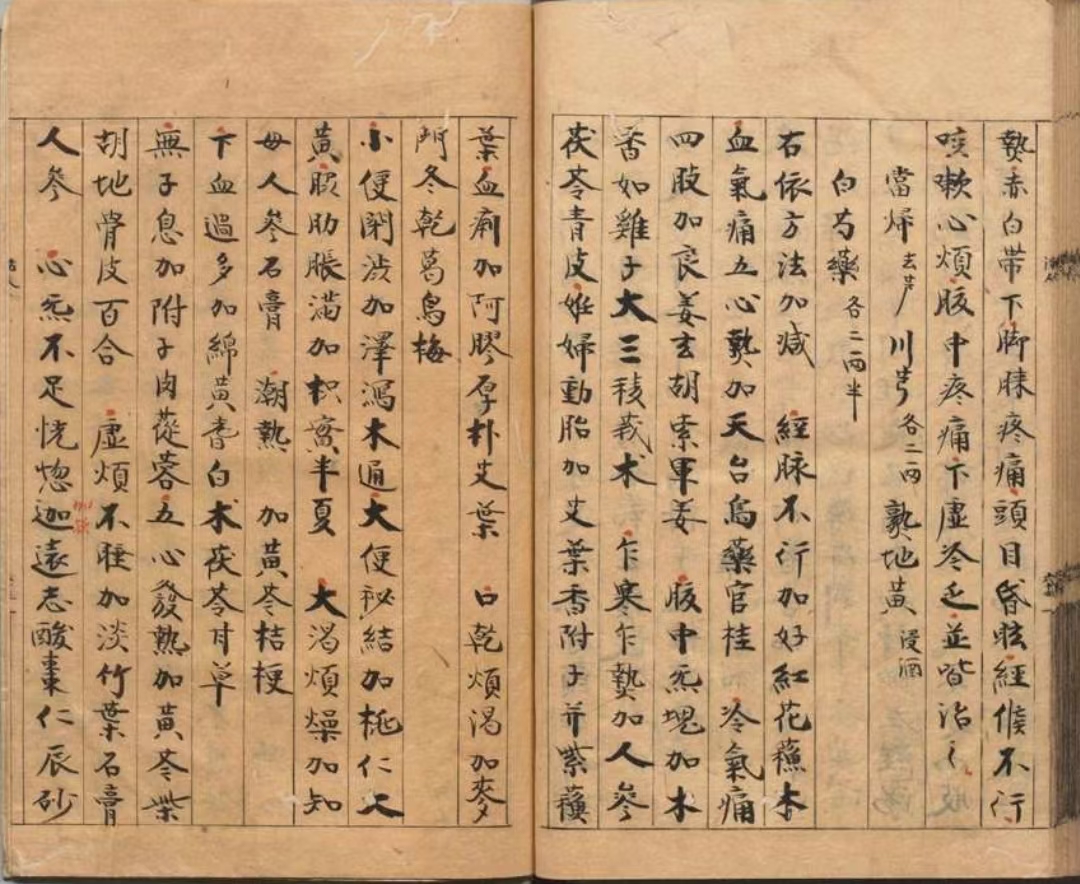 熱赤白帯下脚膝疼痛頭目昏眩經候不行
咳嗽心煩腹中疼痛下虚冷乏並皆治之
當帰去芦 川芎各二两 熟地黄浸酒
白芍藥各二两半
右依方法加减 經脉不行加好紅花蘓木
血氣痛五心熱加天台烏藥官桂 冷氣痛
四肢加良姜玄胡索軍姜 腹中炁塊加木
香如雞子大三稜莪术 乍寒乍熱加人參
茯苓青皮 妊婦動胎加艾葉香附子并紫蘓
葉 血痢加阿膠厚朴艾葉 口乾煩渴加麥
門冬乾葛烏梅
小便閉澁加澤瀉木通 大便秘結加桃仁大
黄 腹肋脹滿加枳實半夏 大渴煩燥加知
母人參石膏 潮熱 加黄芩桔梗
下血過多加綿黄耆白术茯苓甘草
無子息加附子肉蓯蓉 五心發熱加黄芩柴
胡地骨皮百合 虚煩不睡加淡竹葉石膏
人參 心炁不足恍惚加遠志酸棗仁辰砂